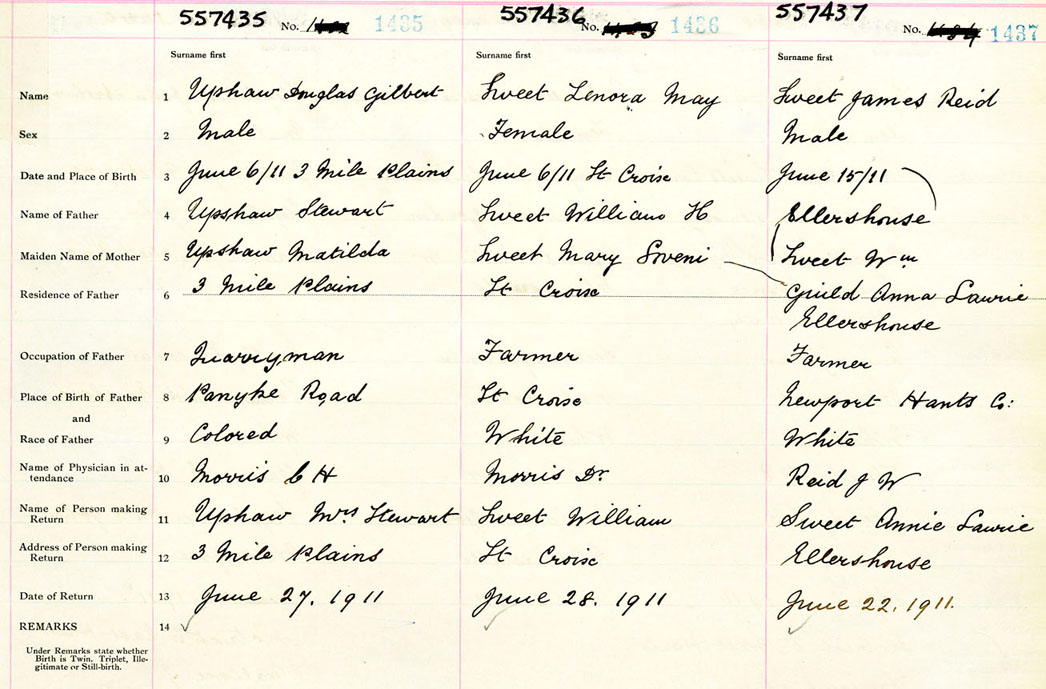 557435 No. 1435 557436 No. 1436 557437 No. 1437
Surname first Surname first Surname first
Name 1 Upshaw Douglas Gilbert Sweet Lenora May Sweet James Reid
Sex 2 Male Female Male
Date and Place of Birth 3 June 6/11 3 Mile Plains June 6/11 St Croix June 15/11
Name of Father 4 Upshaw Stewart Sweet William H Ellershouse
Maiden Name of Mother 5 Upshaw Matilda Sweet Mary Sweet Wm
Residence of Father 6 3 Mile Plains St Croix Guild Anna Laurie
Ellershouse
Occupation of Father 7 Quarryman Farmer Farmer
Place of Birth of Father 8 Panyke Road St Croix Newport Hants Co:
and
Race of Father 9 Colored White White
Name of Physician in at-
tendance 10 Morris C H Morris Dr. Reid J W
Name of Person making
Return 11 Upshaw Mrs Stewart Sweet William Sweet Annie Laurie
Address of Person making
Return 12 3 Mile Plains St Croix Ellershouse
Date of Return 13 June 27, 1911 June 28. 1911 June 22, 1911.
REMARKS 14
Under Remarks state whether
Birth is Twin. Triplet, Ille-
gitimate or Still-birth.